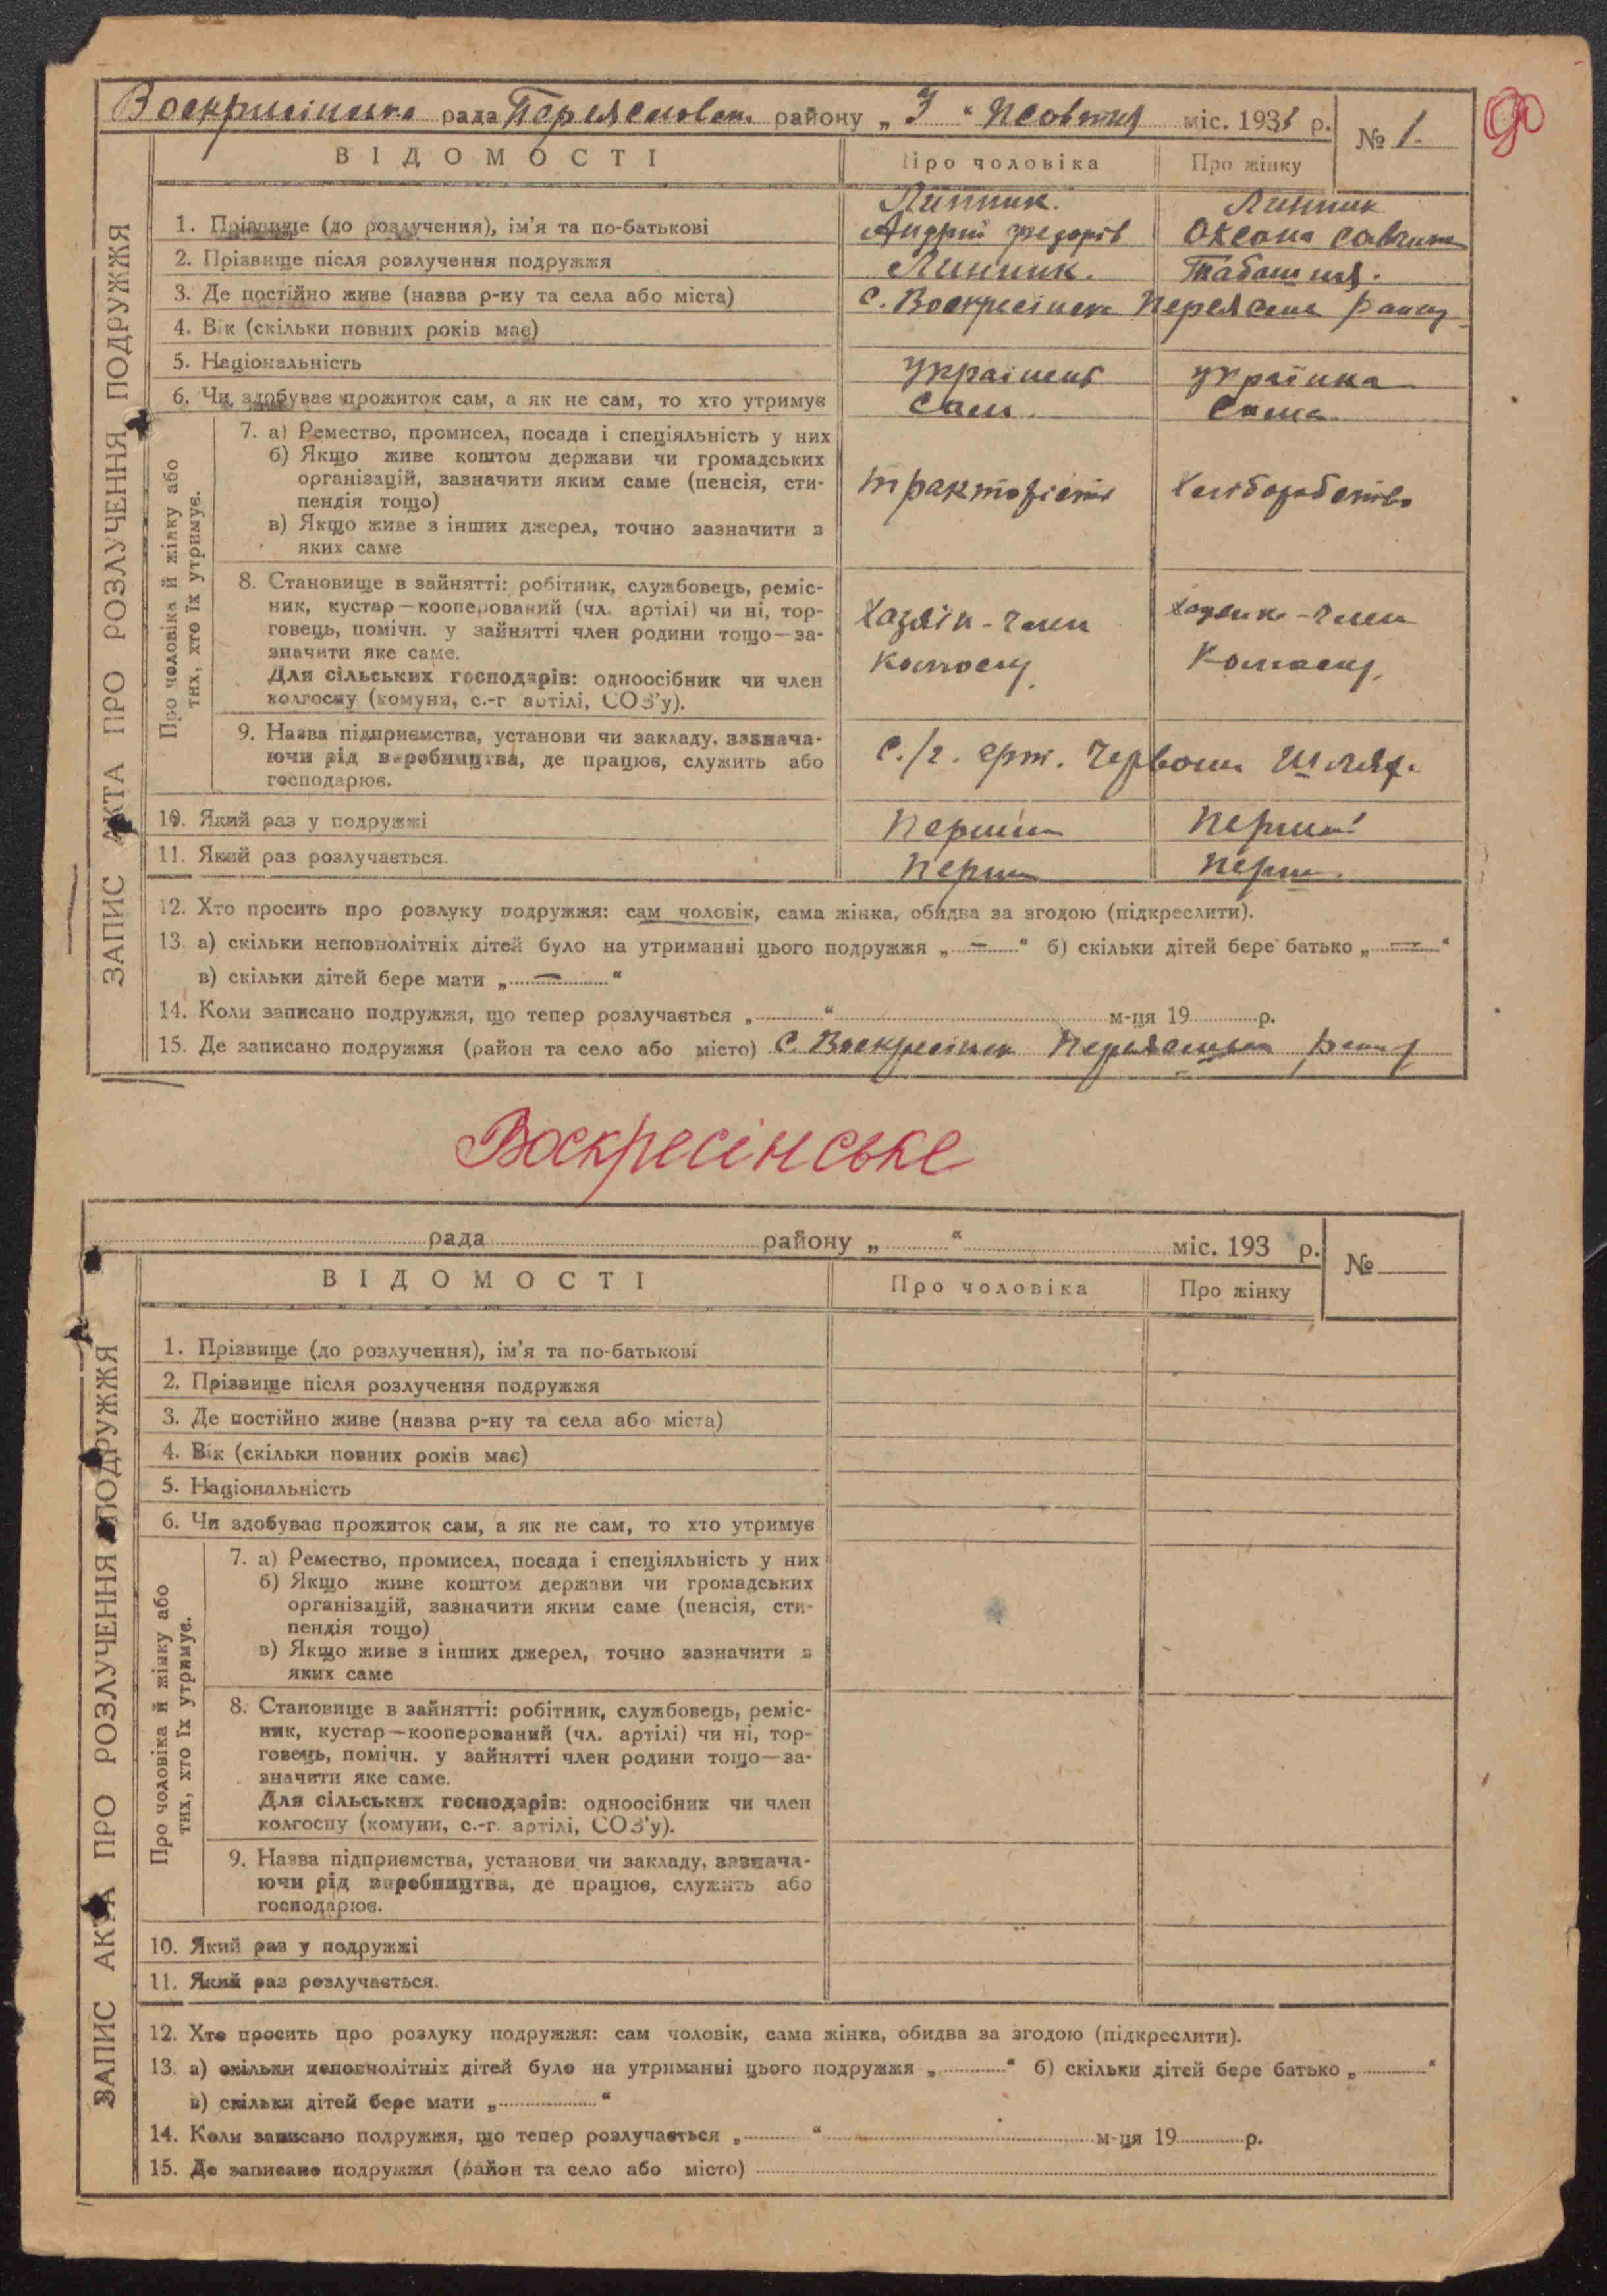 Воскрисінська рада Переяславськ. району „3“ жовтня міс. 193 р. № 1.
ВІДОМОСТІ Про чоловіка Про жінку
ЗАПИС АКТА ПРО РОЗЛУЧЕННЯ ПОДРУЖЖЯ
Линник. Линник
1. Прізвище (до розлучення), ім'я та по-батькові Андрій федорів Оксана Савчина
2. Прізвище після розлучення подружжя Линник.
3. Де постійно живе (назва р-ну та села або міста) С. Воскресінск
4. Вік (скільки повних років має)
5. Національність українець українка
6. Чи здобуває прожиток сам, а як не сам, то хто утримує Сам. Сама
Про чоловіка й жінку або
тих, хто їх утримує.
7. а) Ремество, промисел, посада і спеціяльність у них
б) Якщо живе коштом держави чи громадських
організацій, зазначити яким саме (пенсія, сти-
пендія тощо)
тракторист Хліборобство
в) Якщо живе з інших джерел, точно зазначити з
яких саме
8. Становище в зайнятті: робітник, службовець, реміс-
ник, кустар—кооперований (чл. артілі) чи ні, тор-
говець, помічн. у зайнятті член родини тощо—за-
значити яке саме.
Для сільських господарів: одноосібник чи член
колгоспу (комуни, с.-г артілі, СОЗ'у).
Хазяїн - член
9. Назва підприємства, установи чи закладу, зазнача-
ючи рід виробництва, де працює, служить або
господарює.
С./г. арт. Червоний Шлях.
10. Який раз у подружжі Перший Перший
11. Який раз розлучається. Перш Перш.
12. Хто просить про розлуку подружжя: сам чоловік, сама жінка, обидва за згодою (підкреслити).
13. а) скільки неповнолітніх дітей було на утриманні цього подружжя „ — “ б) скільки дітей бере батько „ — “
в) скільки дітей бере мати „ — “
14. Коли записано подружжя, що тепер розлучається „ “ м-ця 19 р.
15. Де записано подружжя (район та село або місто) С. Воскресінск
Воскресінське
рада району „ “ міс. 193 р. №
ВІДОМОСТІ Про чоловіка Про жінку
ЗАПИС АКТА ПРО РОЗЛУЧЕННЯ ПОДРУЖЖЯ
1. Прізвище (до розлучення), ім'я та по-батькові
2. Прізвище після розлучення подружжя
3. Де постійно живе (назва р-ну та села або міста)
4. Вік (скільки повних років має)
5. Національність
6. Чи здобуває прожиток сам, а як не сам, то хто утримує
Про чоловіка й жінку або
тих, хто їх утримує.
7. а) Ремество, промисел, посада і спеціяльність у них
б) Якщо живе коштом держави чи громадських
організацій, зазначити яким саме (пенсія, сти-
пендія тощо)
в) Якщо живе з інших джерел, точно зазначити з
яких саме
8. Становище в зайнятті: робітник, службовець, реміс-
ник, кустар—кооперований (чл. артілі) чи ні, тор-
говець, помічн. у зайнятті член родини тощо—за-
значити яке саме.
Для сільських господарів: одноосібник чи член
колгоспу (комуни, с.-г. артілі, СОЗ'у).
9. Назва підприємства, установи чи закладу, зазнача-
ючи рід виробництва, де працює, служить або
господарює.
10. Який раз у подружжі
11. Який раз розлучається.
12. Хто просить про розлуку подружжя: сам чоловік, сама жінка, обидва за згодою (підкреслити).
13. а) скільки неповнолітніх дітей було на утриманні цього подружжя „ “ б) скільки дітей бере батько „ “
в) скільки дітей бере мати „ “
14. Коли записано подружжя, що тепер розлучається „ “ м-ця 19 р.
15. Де записано подружжя (район та село або місто)